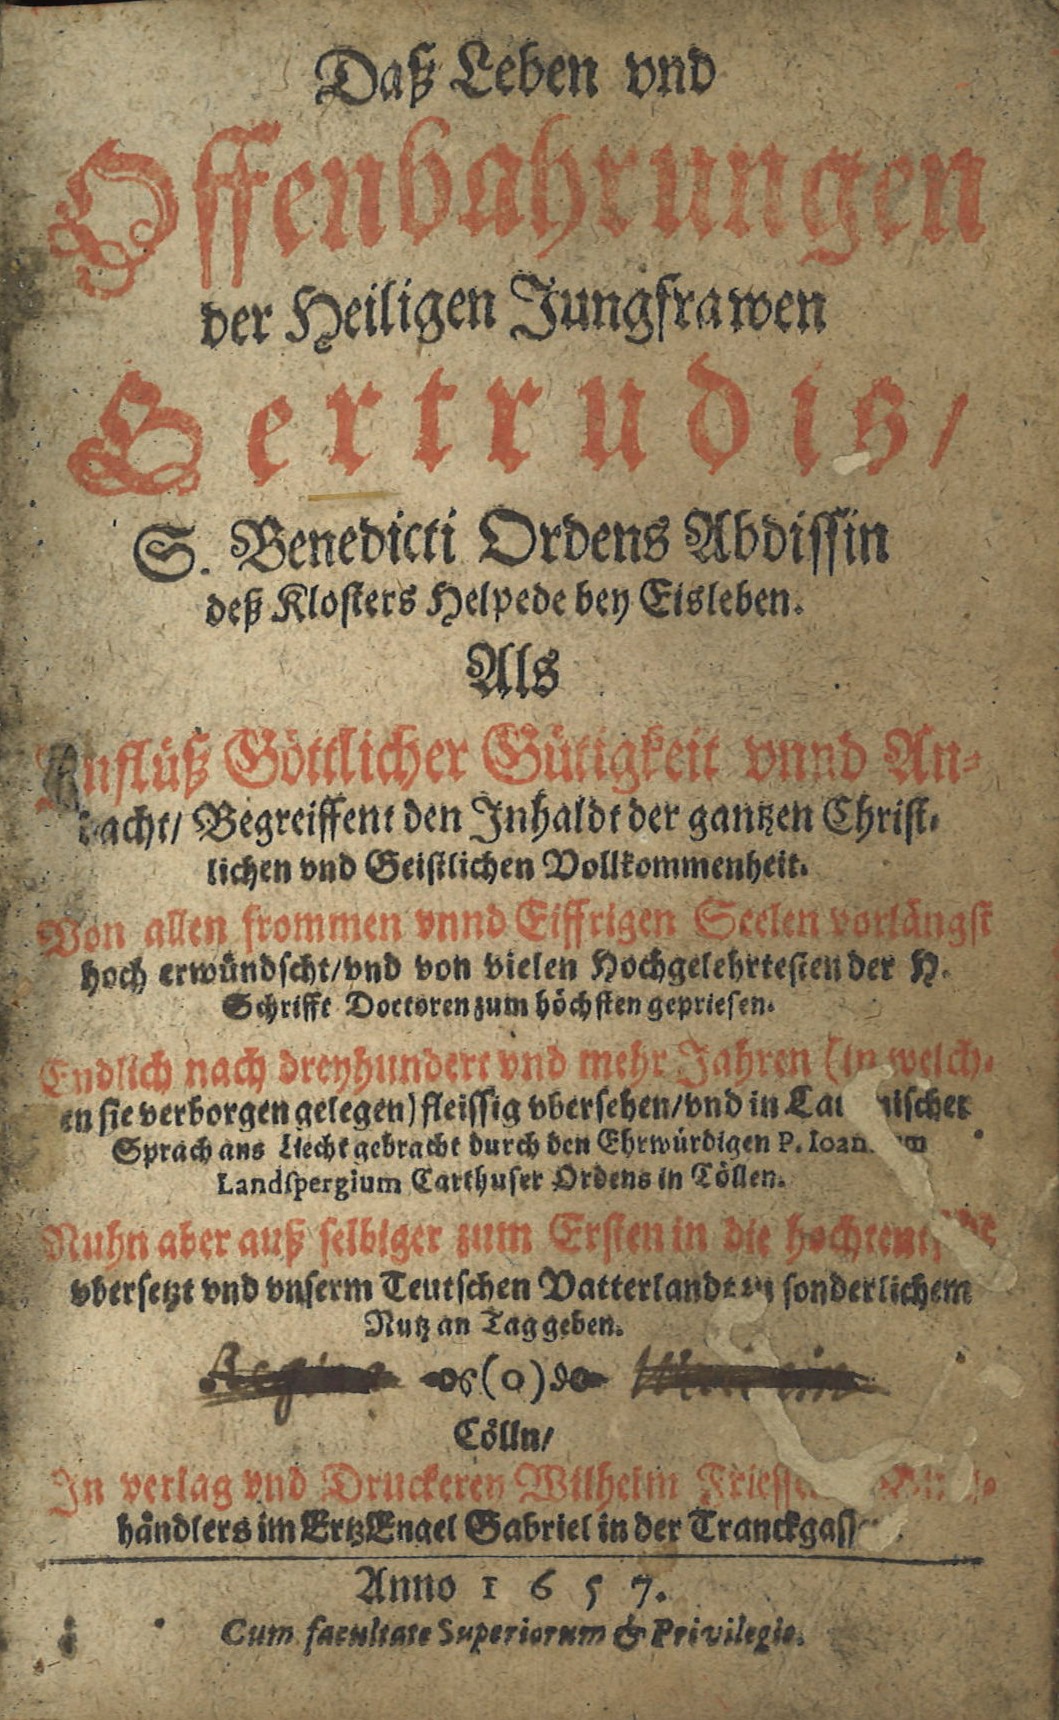 Daß Leben vnd
Offenbahrungen
der Heiligen Jungfrawen
Gertrudis/
S. Benedicti Ordens Abdissin
deß Klosters Helpede bey Eisleben.
Als
Göttlicher Gütigkeit vnnd An-
dacht/ Begreiffent den Inhaldt der gantzen Christ-
lichen vnd Geistlichen Vollkommenheit.
Von allen frommen vnnd Eiffrigen Seelen vorlängst
hoch erwündscht/vnd von vielen Hochgelehrtesten der H.
Schrifft Doctoren zum höchsten gepriesen.
Endlich nach dreyhundert vnd mehr Jahren (in welch-
en sie verborgen gelegen) fleissig vbersehen/vnd in
Sprach ans Liecht gebracht durch den Ehrwürdigen P.
Landspergium Carthuser Ordens in Cöllen.
Nuhn aber auß selbiger zum Ersten in die
vbersetzt vnd vnserm Teutschen Vatterlandt sonderlichem
Nutz an Tag geben.
(o)
Cölln/
In verlag vnd Druckerey Wilhelm
händlers im ErtzEngel Gabriel in der
Anno 1657.
Cum facultate Superiorum & Privilegio.